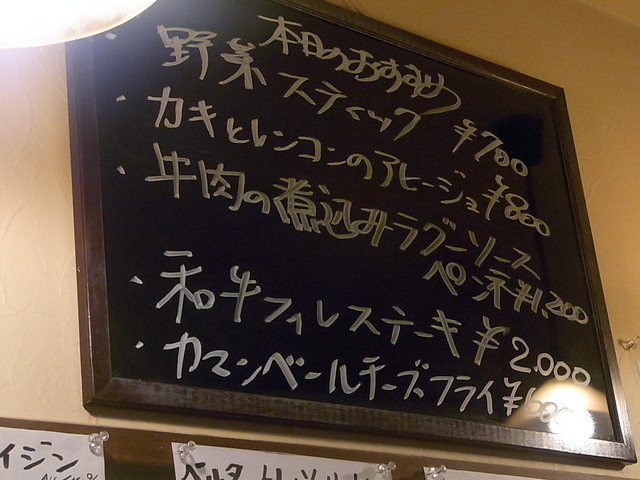 本日のおすすめ
・野菜スティック ¥700
・カキとレンコンのアヒージョ ¥800
・牛肉の煮込みラグーソース
ペンネ ¥1,200
・和牛フィレステーキ ¥2.000
・カマンベールチーズフライ ¥600
イジン